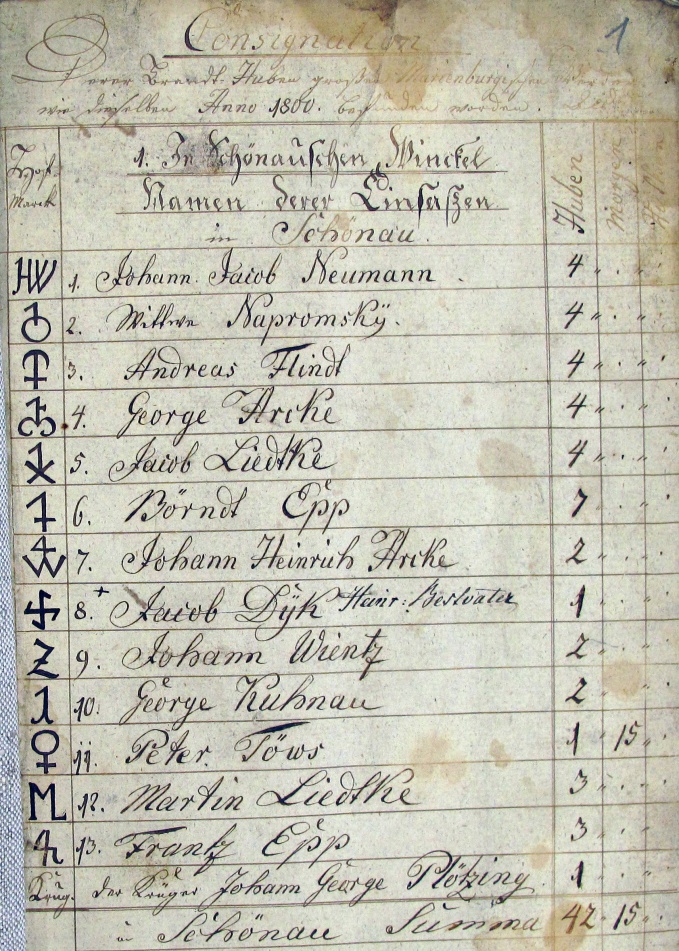 1
Consignation
Derer Brandt-Huben großen Marienburgischen
wie dieselben Anno 1800. befunden worden.
Hoff- Marck
1. In Schönauschen Winckel
Namen derer Einsaßen
in Schönau.
Huben Morgen
HW 1. Johann Jacob Neumann 4 " . "
2. Wittwe Napromskÿ. 4 " . "
3. Andreas Flindt 4 " . "
4. George Arcke 4 " . "
5. Jacob Liedtke 4 " . "
6. Börndt Epp 7 " . "
7. Johann Heinrich Arcke 2 " . "
8. + Jacob Dÿk Heinr: Bestvater 1 " . "
9. Johann Wientz 2 " . "
10. George Kuhnau 2 " . "
11. Peter Töws 1 15 "
12. Martin Liedtke 3 " . "
13. Frantz Epp 3 " . "
Krug. der Krüger Johann George Plötzing 1 " . "
in Schönau Summa 42 " 15 "